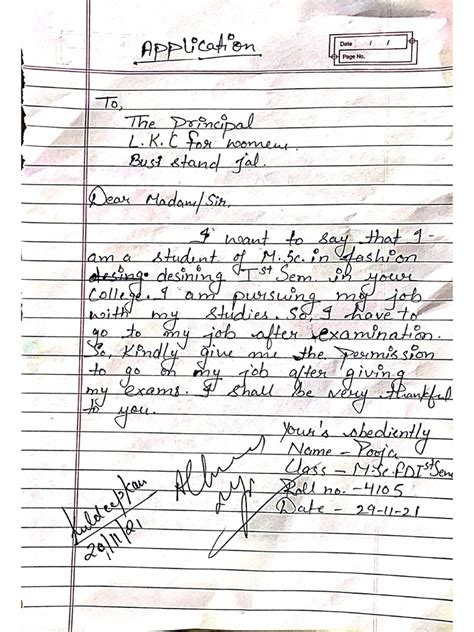 Application
Date / /
Page No.
To,
The Principal
L.K.C for women.
Bust stand Jal.
Dear Madam/Sir,
I want to say that I
am a student of M.Sc. in fashion
desing. desining Ist Sem in your
College. I am pursuing my job
with my studies. So, I have to
go to my job after examination.
So, Kindly give me the permission
to go on my job after giving
my exams. I shall be very thankful
to you.
Your's obediently
Name - Pooja
Class - M.Sc.FD Ist Sem
Roll no. - 4105
Date - 29-11-21
Kuldeep Kaur
29/11/21